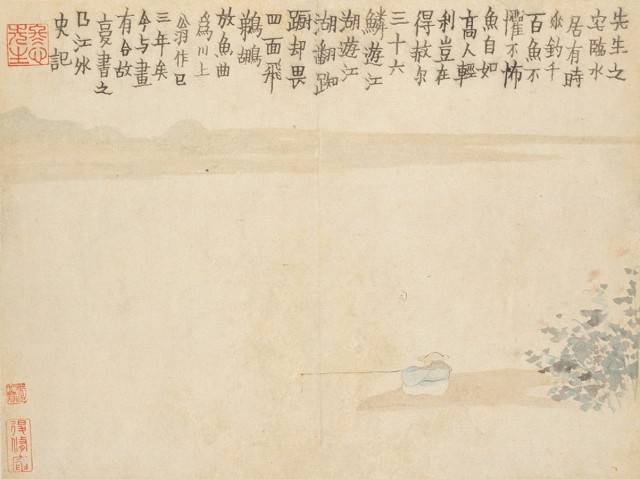 先生之
宅臨水
居有時
垂釣千
百魚不
懼不怖
魚自如
高人輕
利豈在
得赦尔
三十六
鱗遊江
湖遊江
湖翻踟
蹰却畏
四面飛
鵜鶘
放魚曲
爲川上
翁作已
三年矣
今与畫
有合故
亟書之
曲江外
史記
冬心先生